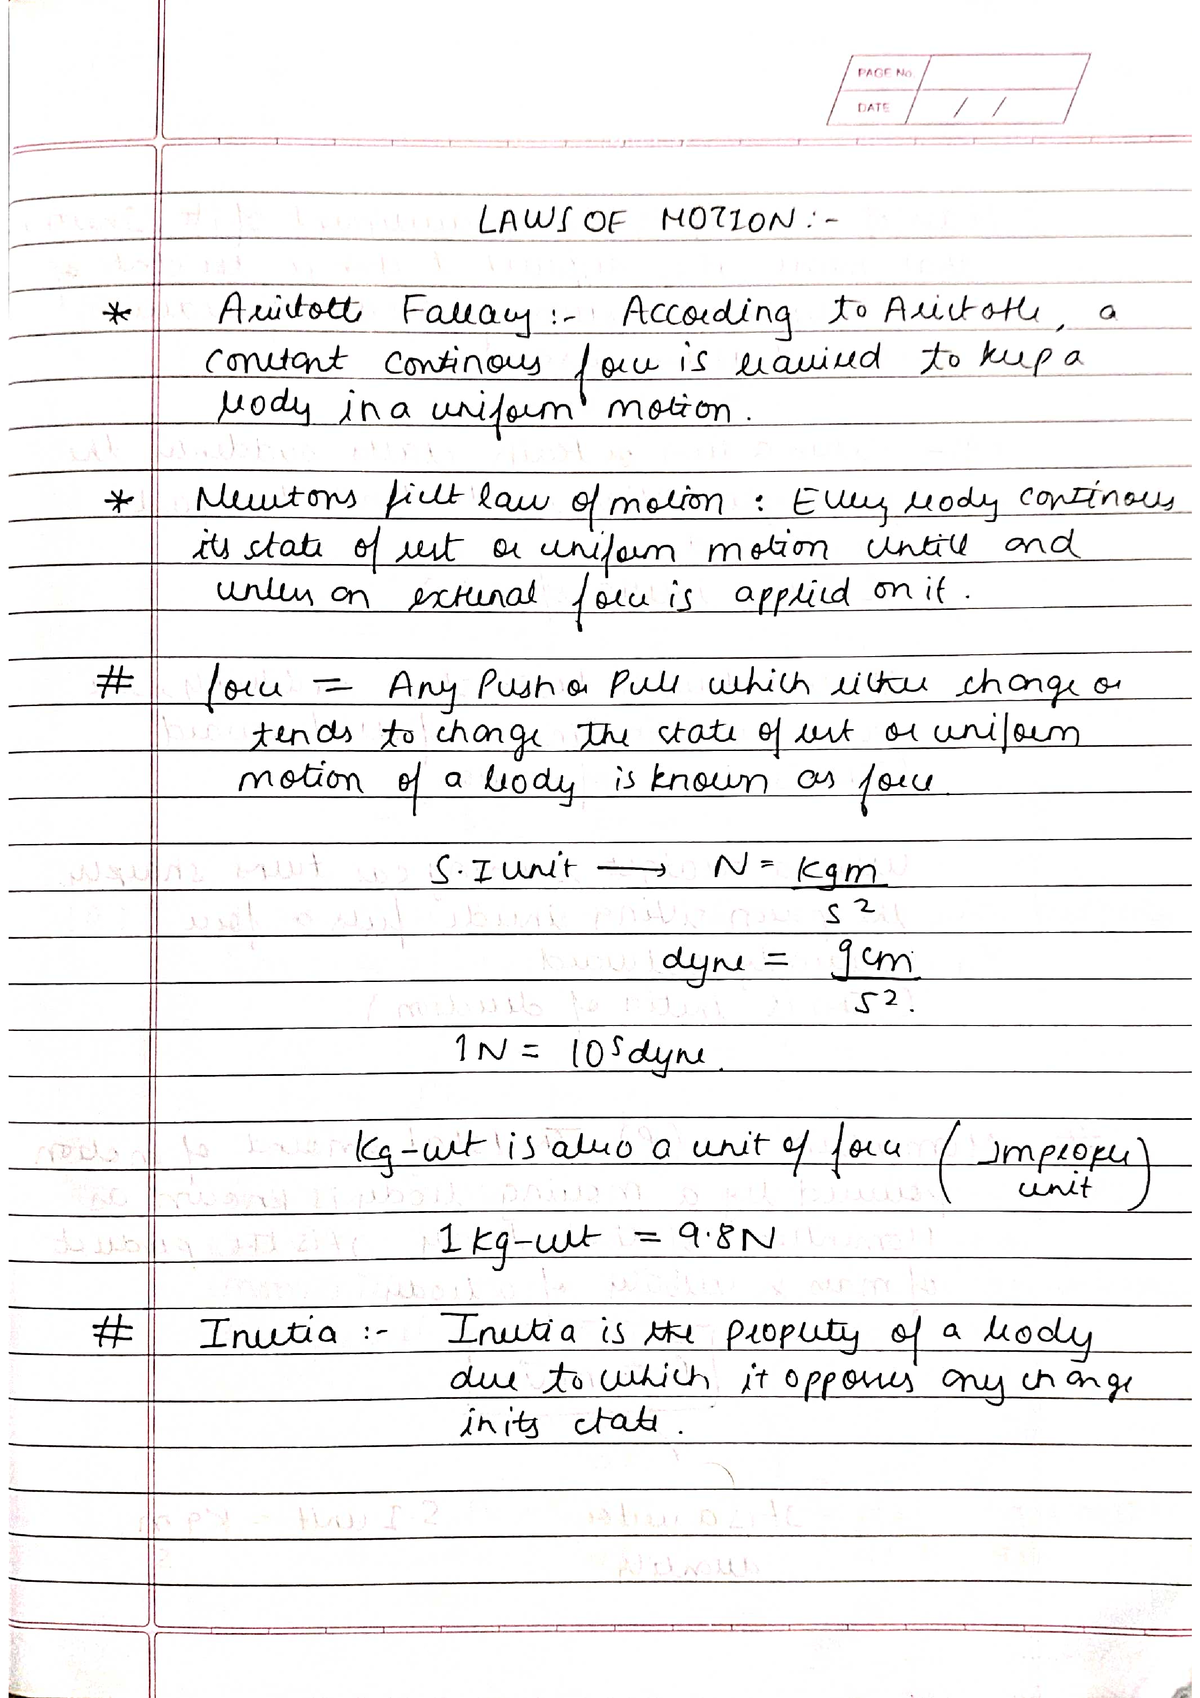 PAGE No.
DATE / /
LAWS OF MOTION :-
* Aristotle Fallacy :- According to Aristotle, a
constant continous force is required to keep a
body in a uniform motion.
* Newtons first law of motion : Every body continous
its state of rest or uniform motion untill and
unless an external force is applied on it.
# force = Any Push or Pull which either change or
tends to change the state of rest or uniform
motion of a body is known as force.
S.I unit → N = kgm
s²
dyne = gcm
s².
1N = 10⁵dyne.
Kg-wt is also a unit of force (Improper
unit)
1 kg-wt = 9.8N
# Inertia :- Inertia is the property of a body
due to which it opposes any change
in its state.